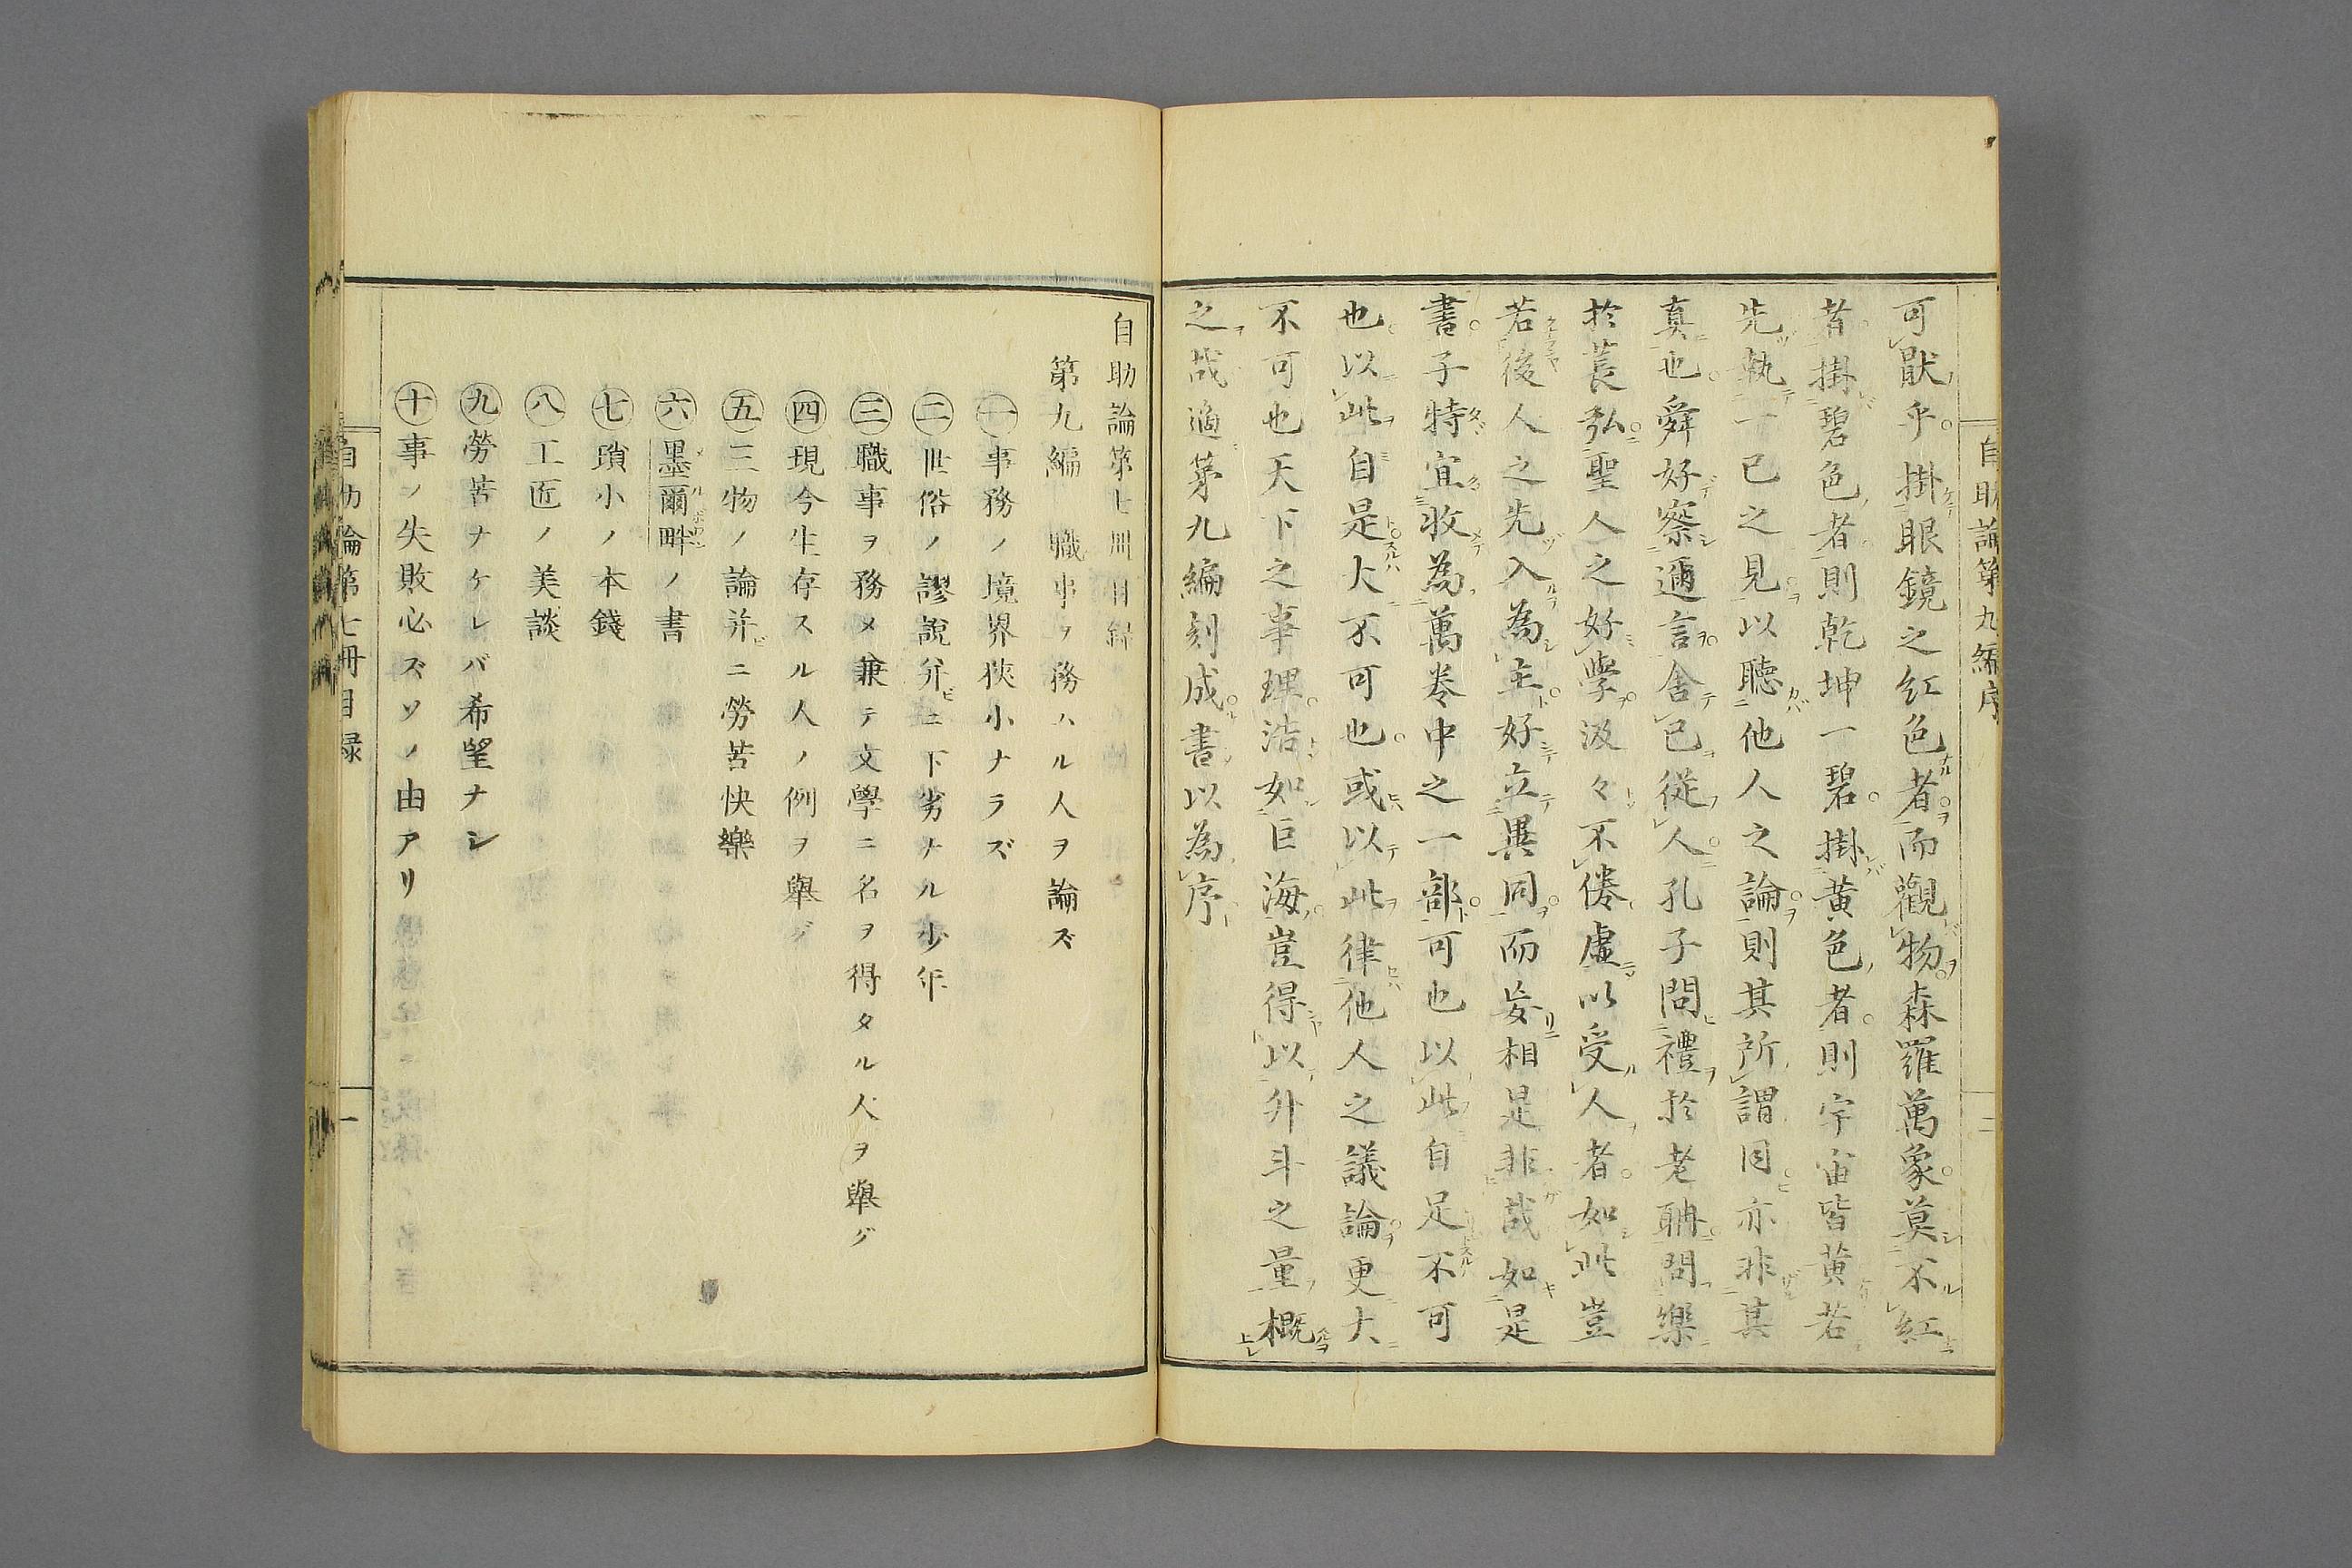 自助論第九編序
可猒乎掛眼鏡之紅色者而觀物森羅萬象莫不紅
者掛碧色者則乾坤一碧掛黄色者則宇宙皆黄若
先執一己之見以聽他人之論則其所謂同亦非其
真也舜好察邇言舍己從人孔子問禮於老聃問樂
於萇弘聖人之好學汲々不倦虛以受人者如此豈
若後人之先入為主好立異同而妄相是非哉如是
書子特宜收為萬卷中之一部可也以此自足不可
也以此自是大不可也或以此律他人之議論更大
不可也天下之事理浩如巨海豈得以升斗之量概
之哉適第九編刻成書以為序
自助論第七冊目録
第九編 職事ヲ務ハル人ヲ論ズ
㊀事務ノ境界狹小ナラズ
㊁世俗ノ謬說并ビニ下劣ナル少年
㊂職事ヲ務メ兼テ文學ニ名ヲ得タル人ヲ擧グ
㊃現今生存スル人ノ例ヲ擧グ
㊄三物ノ論并ビニ勞苦快樂
㊅墨爾畔ノ書
㊆瑣小ノ本錢
㊇工匠ノ美談
㊈勞苦ナケレバ希望ナシ
㊉事ノ失敗必ズソノ由アリ
自助論第七冊目録
一